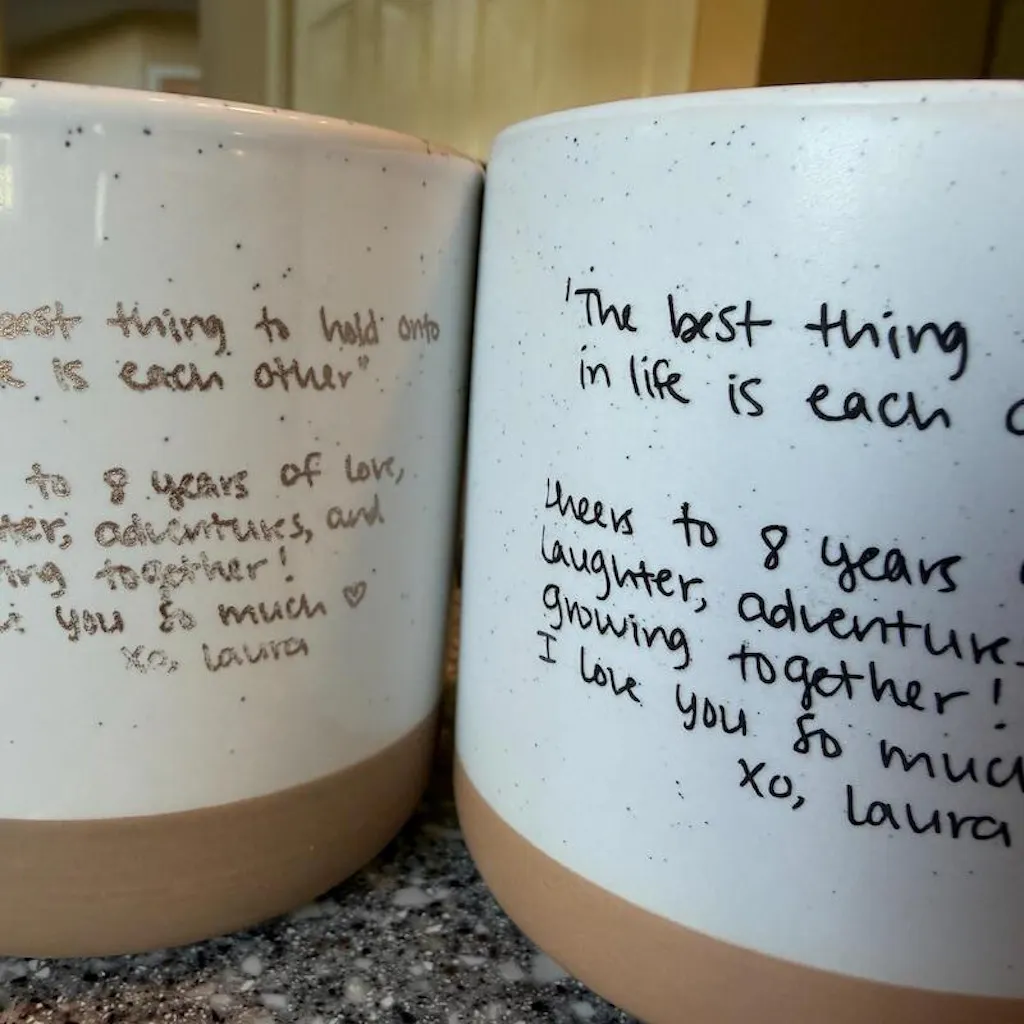 best thing to hold onto
is each other"
to 8 years of love,
adventures, and
together!
you so much ♡
xo, laura
'The best thing
in life is each
Cheers to 8 years
laughter, adventures
growing together!
I love you so much
xo, laura